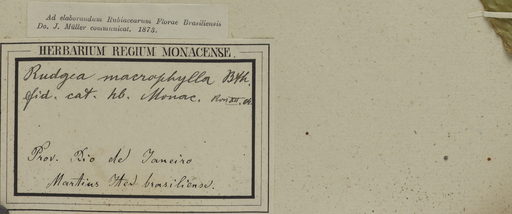 Ad elaborandum Rubiacearum Florae Brasiliensis
Do. J. Müller communicat. 1873.
HERBARIUM REGIUM MONACENSE.
Rudgea macrophylla Bth.
fid. cat. hb. Monac.
Prov. Rio de Janeiro
Martius Iter brasiliense.